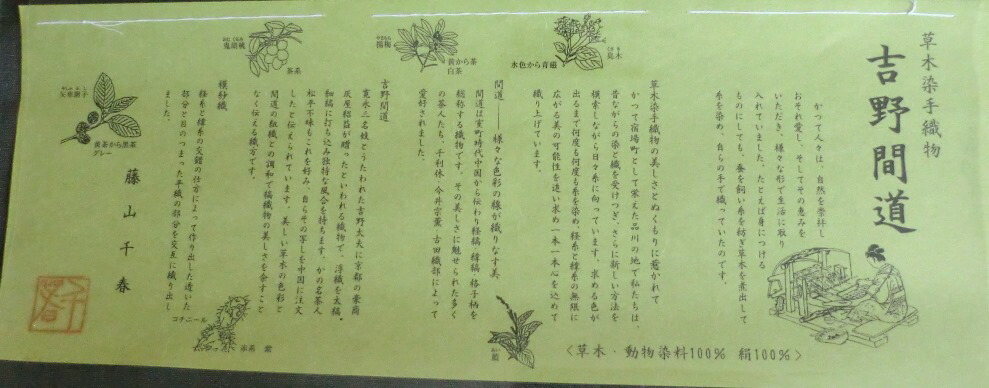 草木染手織物
吉野間道
かつて人々は、自然を崇拝し
おそれ愛し、そしてその恵みを
いただき、様々な形で生活に取り
入れていました。たとえば身につける
ものにしても、蚕を飼い糸を紡ぎ草木を煮出して
糸を染め、自らの手で織っていたのです。
草木染手織物の美しさとぬくもりに惹かれて
かつて宿場町として栄えた品川の地で私たちは、
昔ながらの染と織を受けつぎ、さらに新しい方法を
模索しながら日々糸に向っています。求める色が
出るまで何度も何度も糸を染め、経糸と緯糸の無限に
広がる美の可能性を追い求め一本一本心を込めて
織り上げています。
間道――様々な色彩の線が織りなす美
間道は室町時代中国から伝わり経縞、緯縞、格子柄を
総称する織物です。その美しさに魅せられた多く
の茶人たち、千利休、今井宗薫、古田織部によって
愛好されました。
吉野間道
寛永三名妓とうたわれた吉野太夫に京都の豪商
灰屋紹益が贈ったといわれる織物で、浮織を太縞、
細縞に打ち込み独特な風合を持ちます。かの名茶人
松平不昧もこれを好み、自らその写しを中国に注文
したと伝えられています。美しい草木の色彩と
間道の組織との調和で縞織物の美しさを余すこと
なく伝える織方です。
模紗織
経糸と緯糸の交錯の仕方によって作り出した透いた
部分と目のつまった平織の部分を交互に織り出し
ました。
藤山千春
くさぎ
臭木
水色から青磁
やまもも
楊梅
黄から茶
白茶
おにくるみ
鬼胡桃
茶系
矢車附子
黄茶から黒茶
グレー
コチニール
赤系 紫
あい
藍
〈草木・動物染料100% 絹100%〉